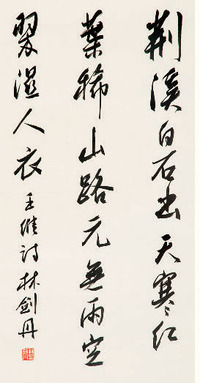 荆溪白石出天寒红
叶稀山路元无雨空
翠湿人衣 王维诗 林剑丹